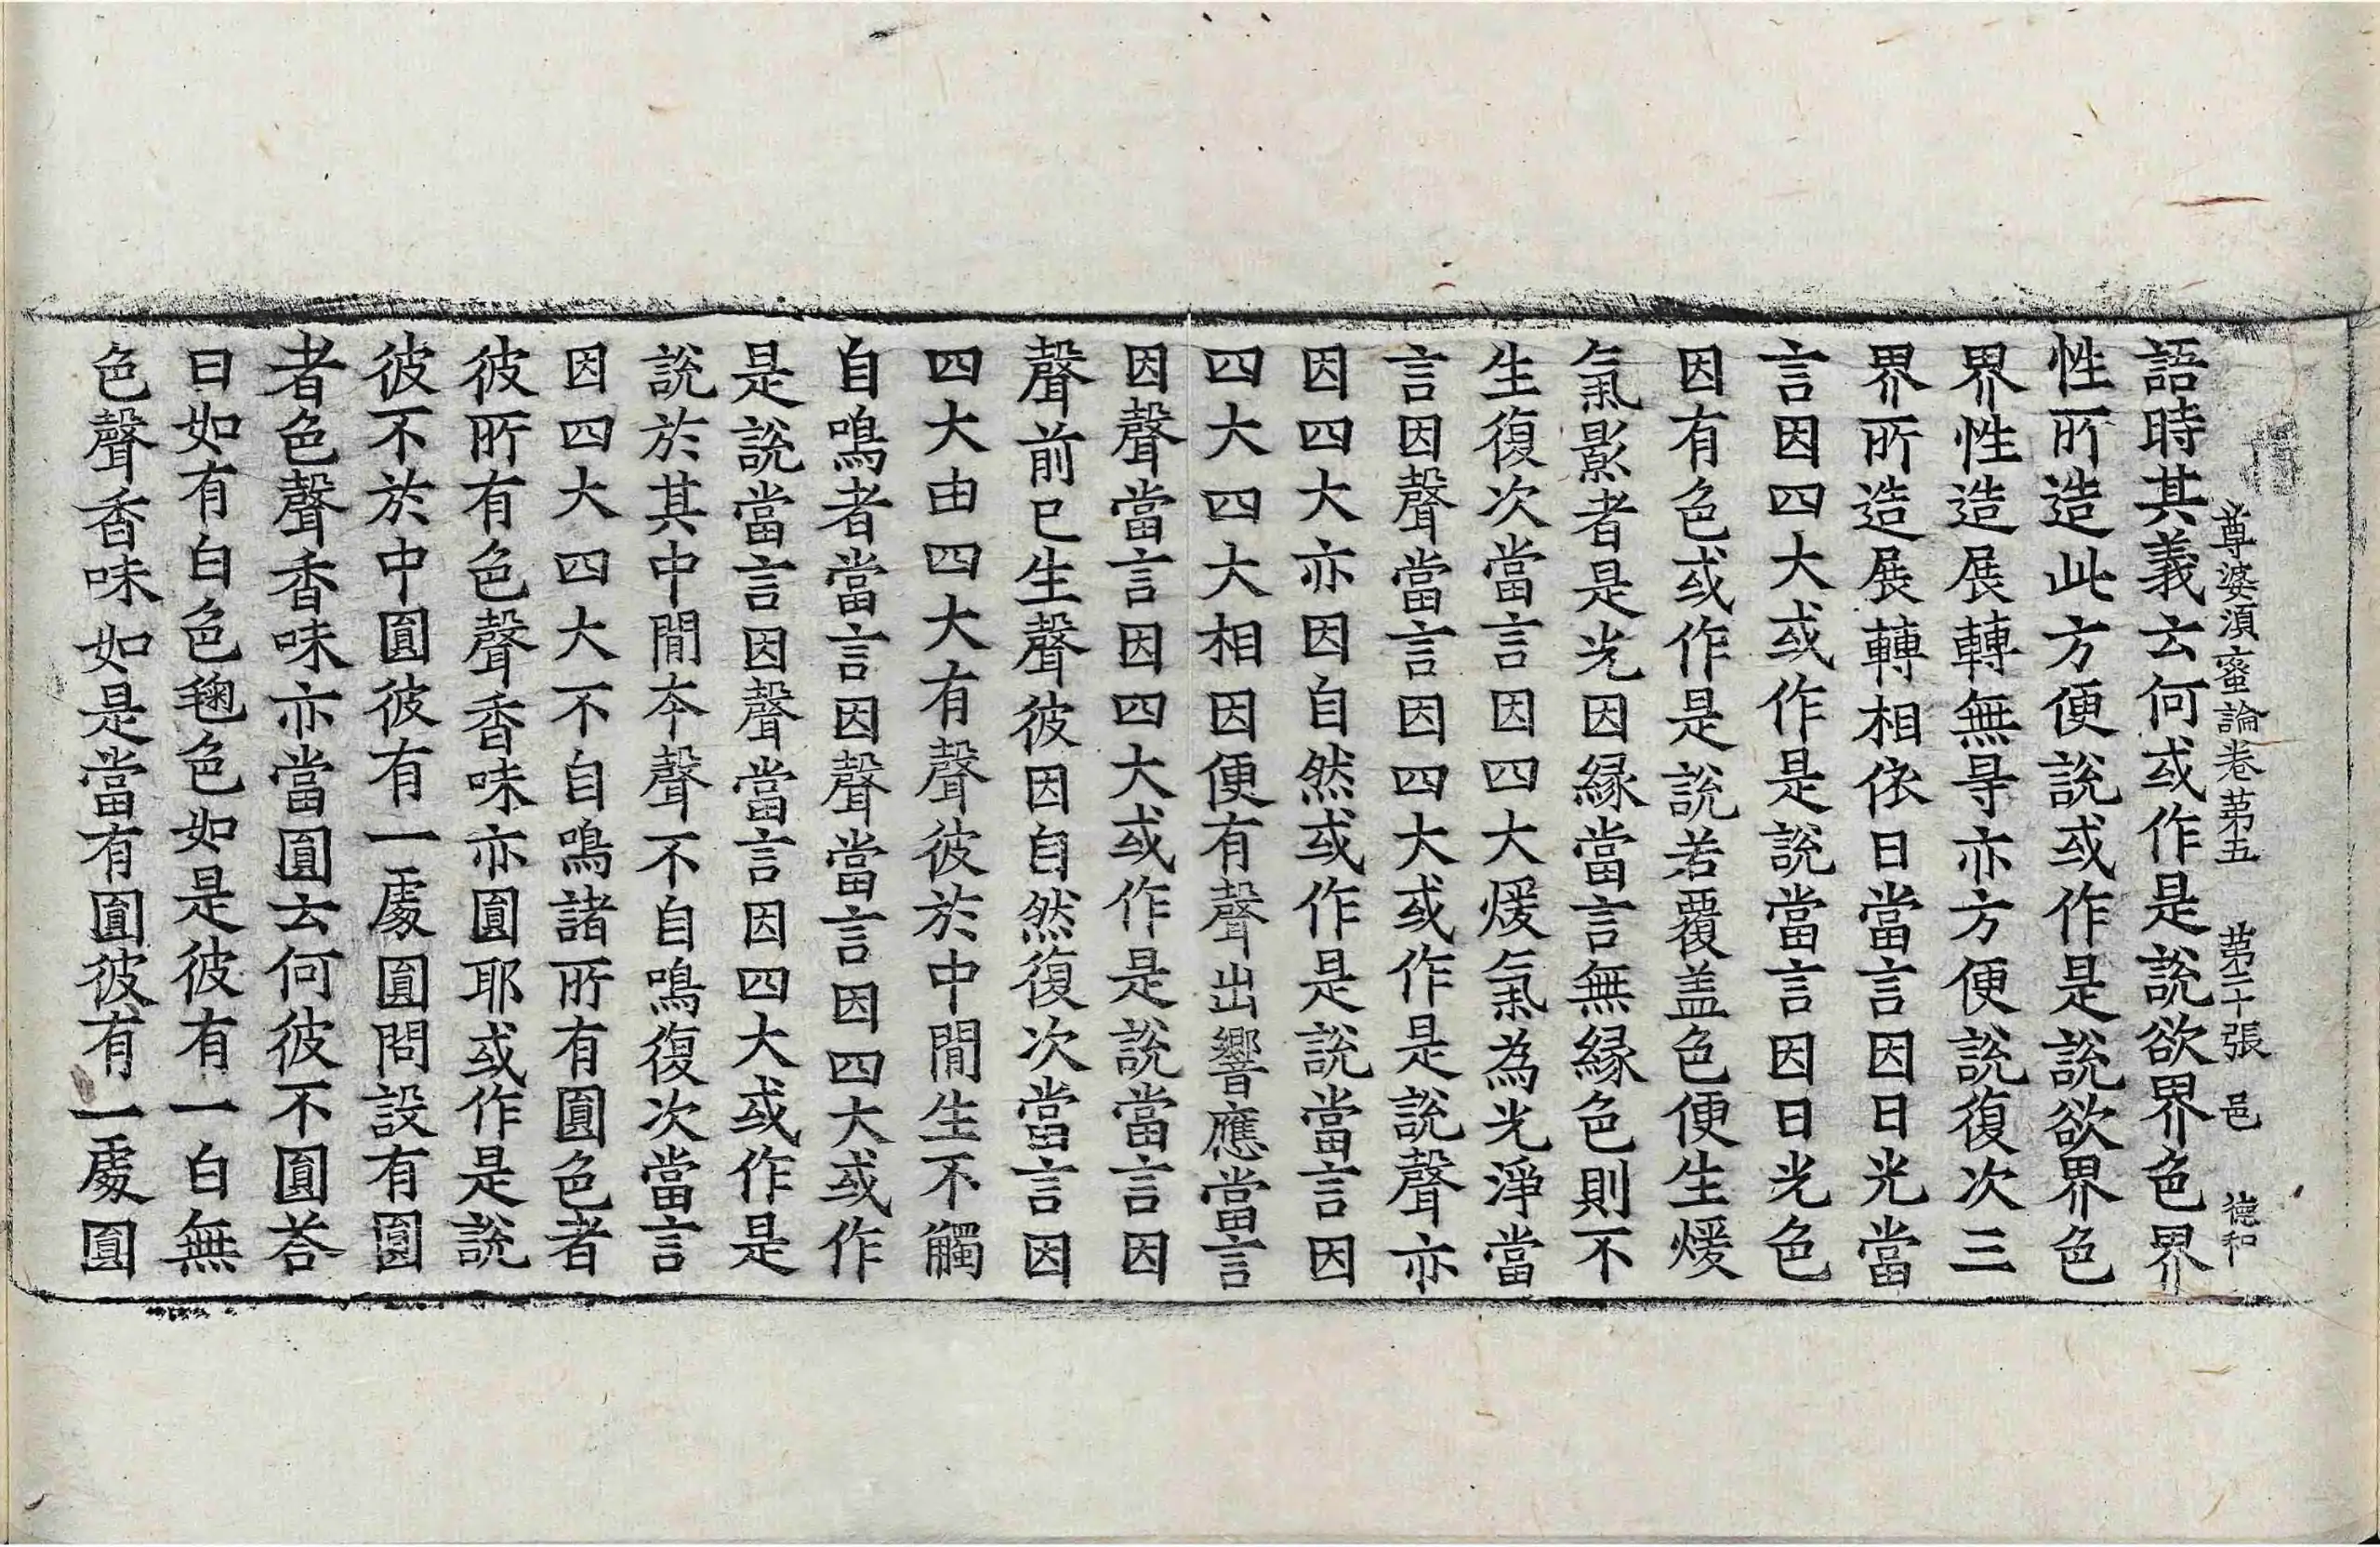 尊婆須蜜論卷苐五　苐二十張　邑　德和
語時其義云何或作是說欲界色界
性所造此方便說或作是說欲界色
界性造展轉無㝵亦方便說復次三
界所造展轉相依日當言因日光當
言因四大或作是說當言因日光色
因有色或作是說若覆盖色便生煖
氣影者是光因縁當言無縁色則不
生復次當言因四大煖氣為光淨當
言因聲當言因四大或作是說聲亦
因四大亦因自然或作是說當言因
四大四大相因便有聲出響應當言
因聲當言因四大或作是說當言因
聲前已生聲彼因自然復次當言因
四大由四大有聲彼於中閒生不觸
自鳴者當言因聲當言因四大或作
是說當言因聲當言因四大或作是
說於其中閒夲聲不自鳴復次當言
因四大四大不自鳴諸所有圓色者
彼所有色聲香味亦圓耶或作是說
彼不於中圓彼有一處圓問設有圓
者色聲香味亦當圓云何彼不圓荅
曰如有白色毱色如是彼有一白無
色聲香味如是當有圓彼有一處圓